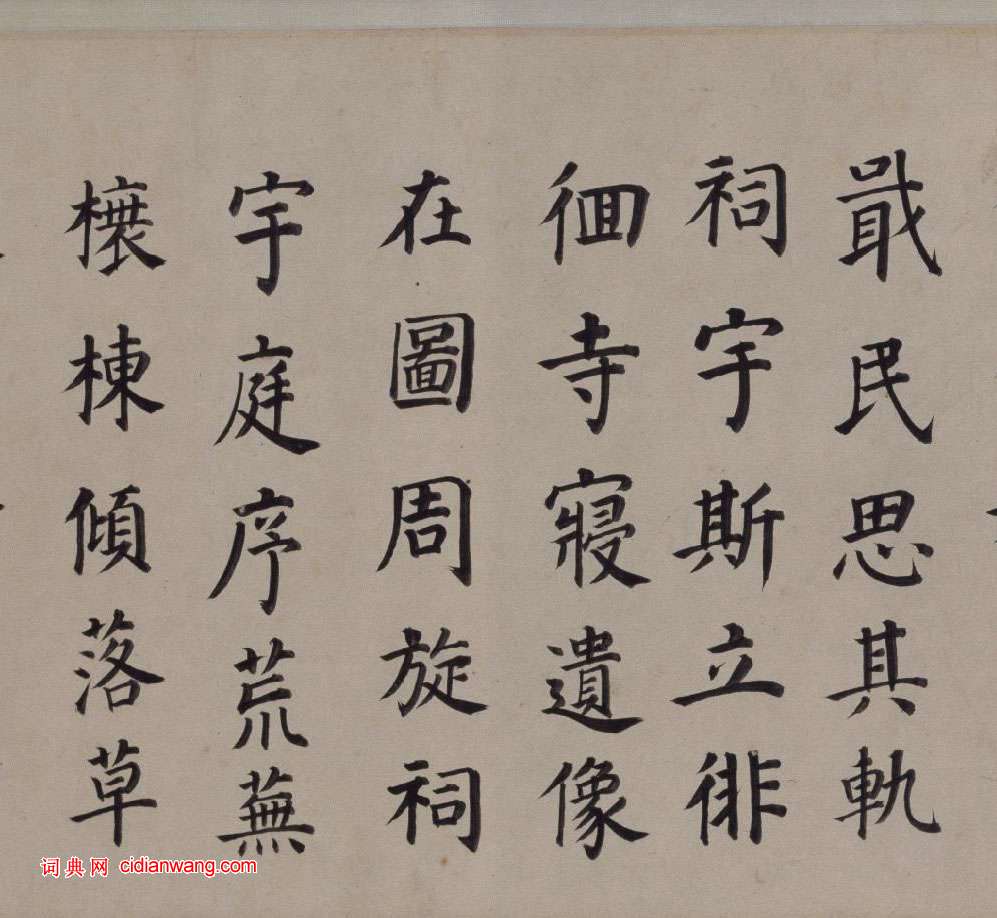 戢民思其軌
祠宇斯立徘
徊寺寢遺像
在圖周旋祠
宇庭序荒蕪
榱棟傾落草
词典网 cidianwang.com